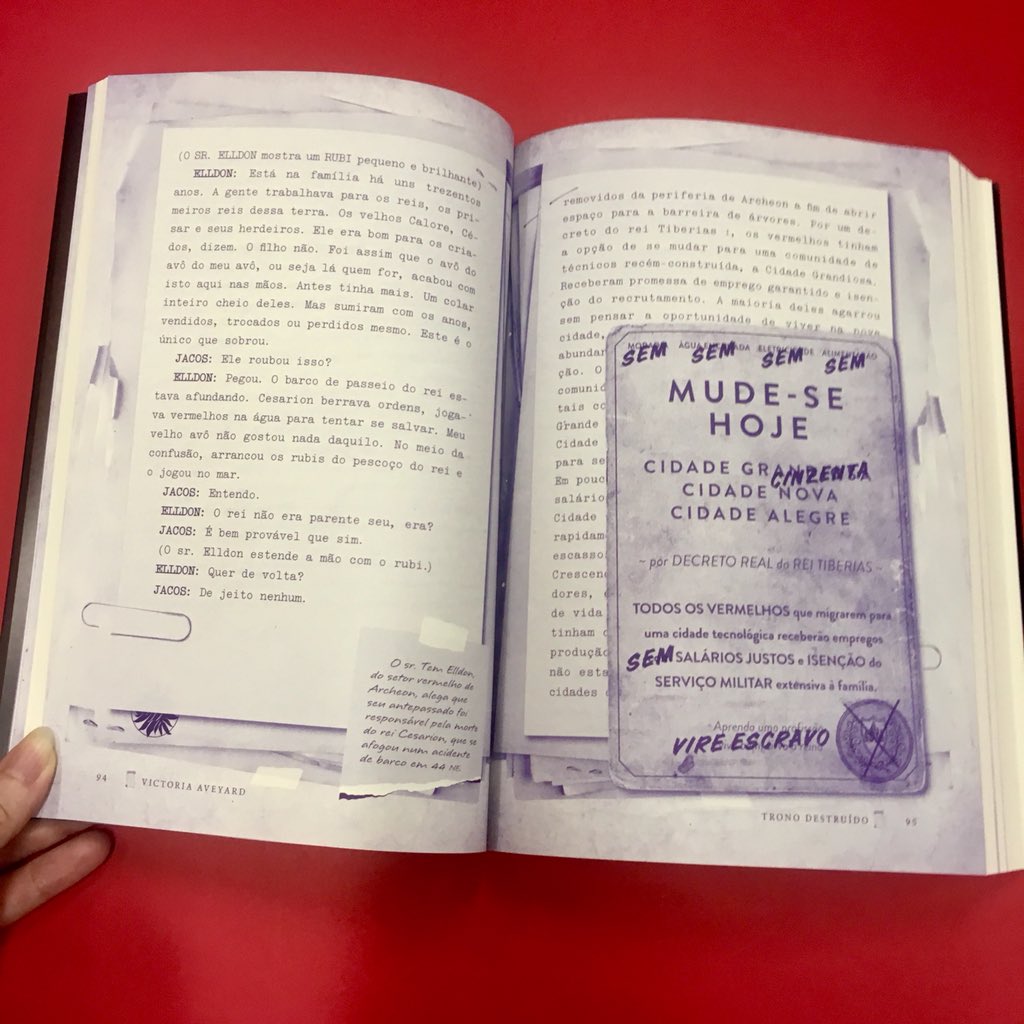 (O SR. ELLDON mostra um RUBI pequeno e brilhante)
ELLDON: Está na família há uns trezentos
anos. A gente trabalhava para os reis, os pri-
meiros reis dessa terra. Os velhos Calore, Cé-
sar e seus herdeiros. Ele era bom para os cria-
dos, dizem. O filho não. Foi assim que o avô do
avô do meu avô, ou seja lá quem for, acabou com
isto aqui nas mãos. Antes tinha mais. Um colar
inteiro cheio deles. Mas sumiram com os anos,
vendidos, trocados ou perdidos mesmo. Este é o
único que sobrou.
JACOS: Ele roubou isso?
ELLDON: Pegou. O barco de passeio do rei es-
tava afundando. Cesarion berrava ordens, joga-
va vermelhos na água para tentar se salvar. Meu
velho avô não gostou nada daquilo. No meio da
confusão, arrancou os rubis do pescoço do rei e
o jogou no mar.
JACOS: Entendo.
ELLDON: O rei não era parente seu, era?
JACOS: É bem provável que sim.
(O sr. Elldon estende a mão com o rubi.)
ELLDON: Quer de volta?
JACOS: De jeito nenhum.
O sr. Tem Elldon,
do setor vermelho de
Archeon, alega que
seu antepassado foi
responsável pela morte
do rei Cesarion, que se
afogou num acidente
de barco em 44 NE.
94 VICTORIA AVEYARD
removidos da periferia de Archeon a fim de abrir
espaço para a barreira de árvores. Por um de-
creto do rei Tiberias, os vermelhos tinham
a opção de se mudar para uma comunidade de
técnicos recém-construída, a Cidade Grandiosa.
Receberam promessa de emprego garantido e isen-
ção do recrutamento. A maioria deles agarrou
sem pensar a oportunidade de viver na nova
cidade,
abundan
ção. O
comunid
tais co
Grande
Cidade
para se
Em pouc
salário
Cidade
rapidam
escasso
Crescen
dores,
de vida
tinham
produçã
não esta
cidades
SEM SEM SEM SEM
MUDE-SE
HOJE
CIDADE GRAN CINZENTA
CIDADE NOVA
CIDADE ALEGRE
~ por DECRETO REAL do REI TIBERIAS ~
TODOS OS VERMELHOS que migrarem para
uma cidade tecnológica receberão empregos
SEM SALÁRIOS JUSTOS e ISENÇÃO do
SERVIÇO MILITAR extensiva à família.
Aprenda uma profissão
VIRE ESCRAVO
TRONO DESTRUÍDO 95